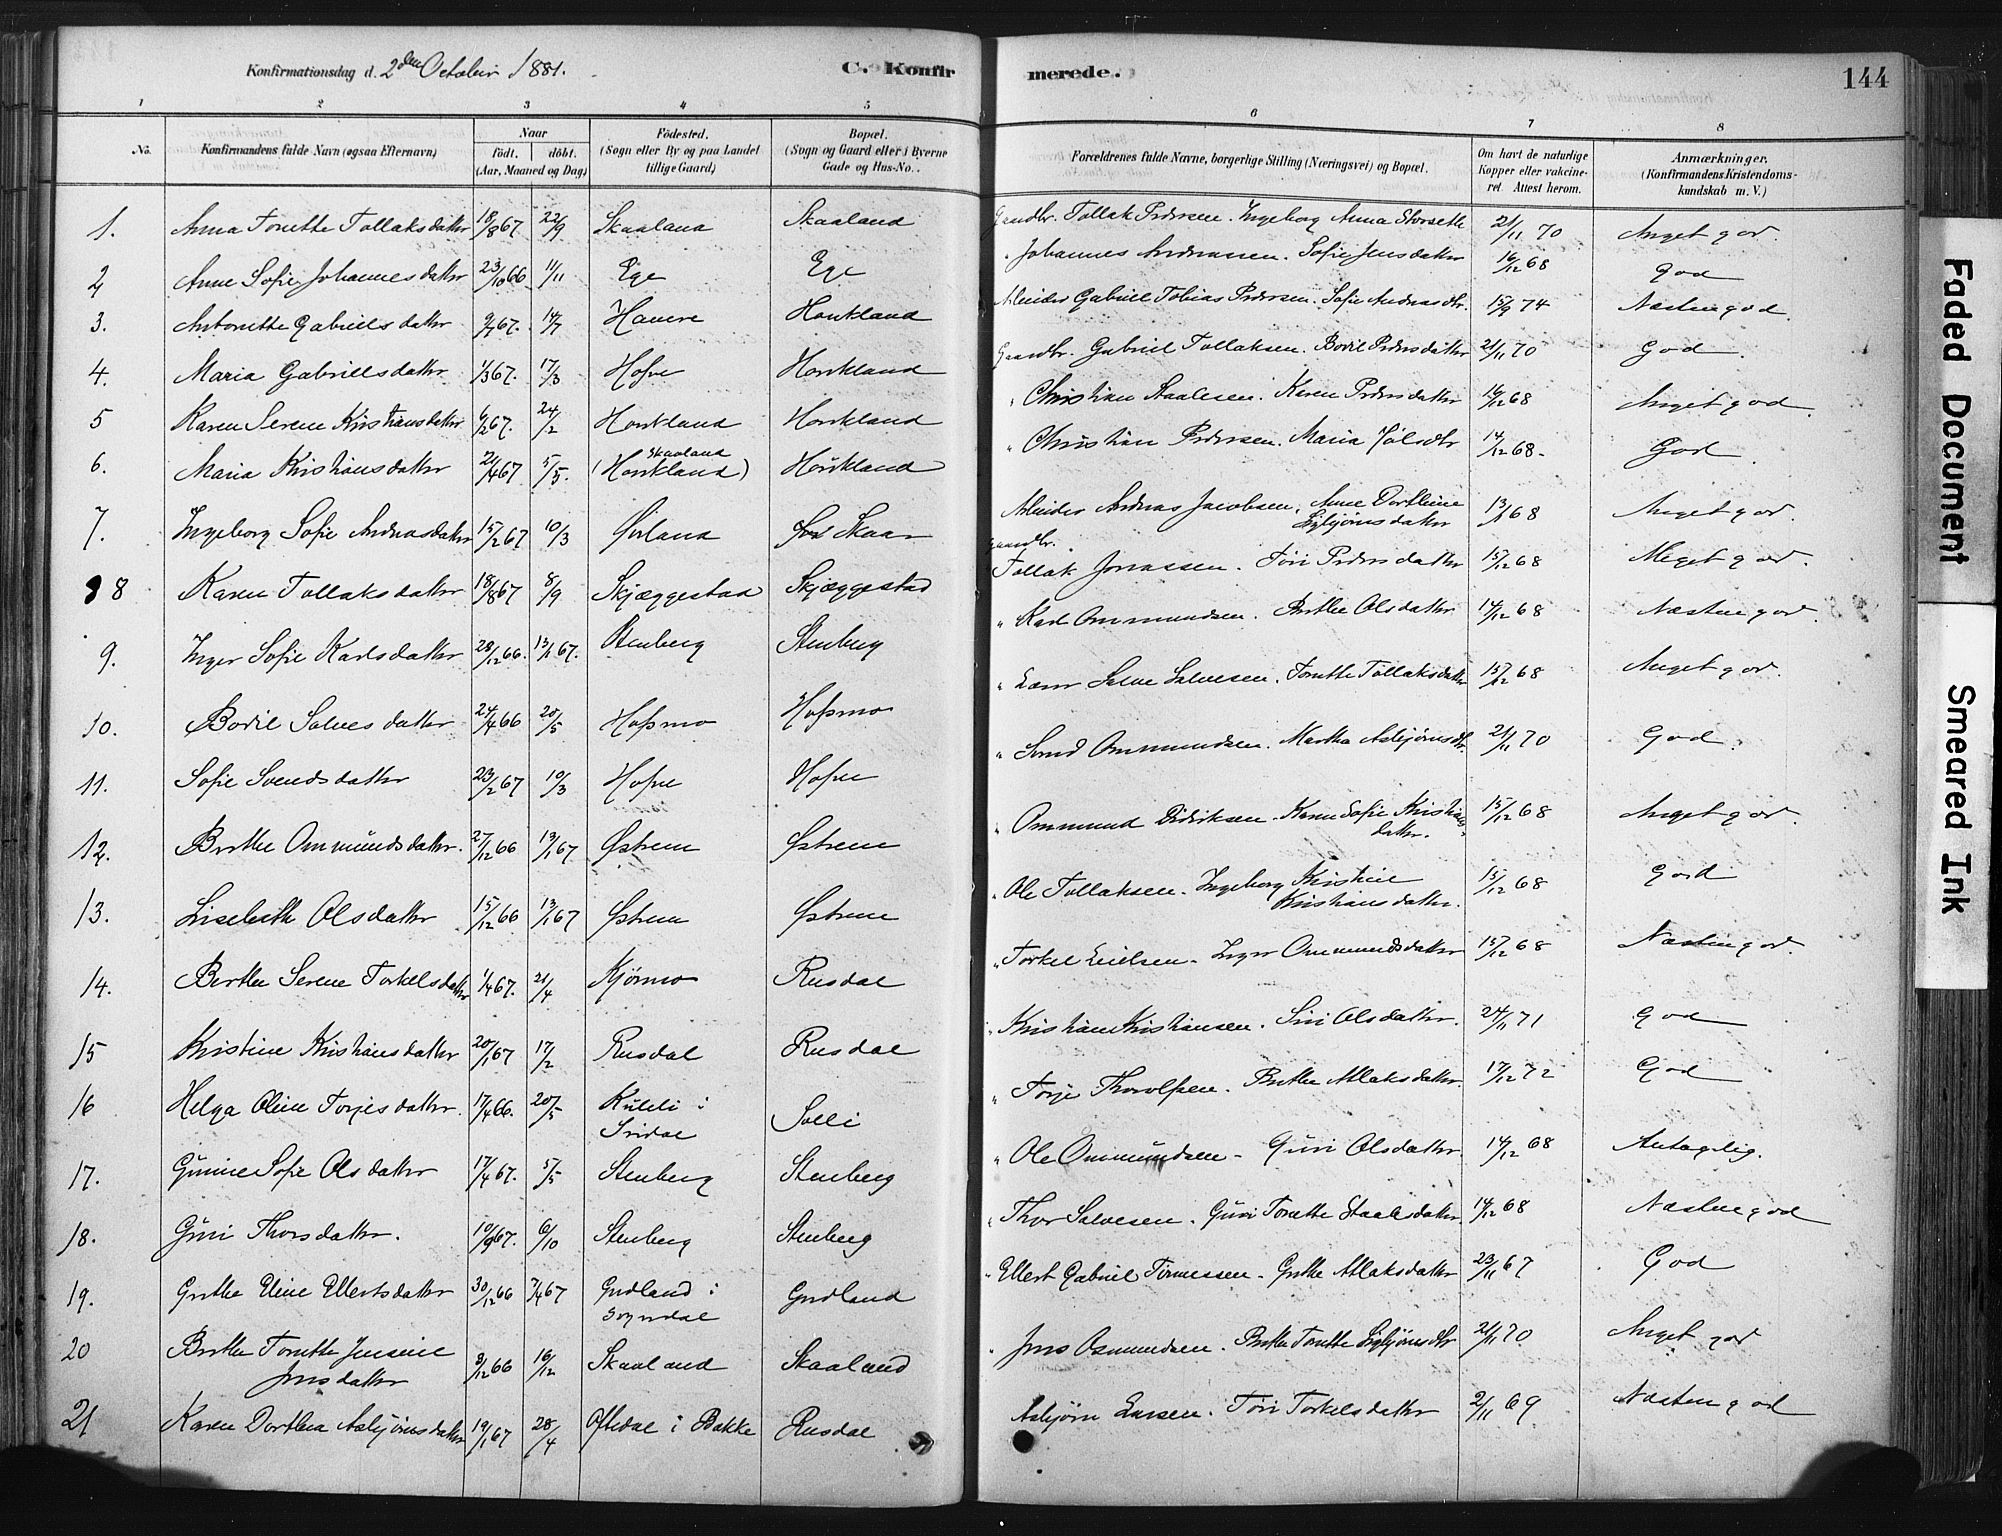 Konfirmationsdag d. 2den October 1881.
C. Konfir
merede.
144
1 2 3 4 5 6 7 8
No.
Konfirmandens fulde Navn (ogsaa Efternavn)
Naar
født. døbt.
(Aar, Maaned og Dag)
Födested.
(Sogn eller By og paa Landet
tillige Gaard)
Bopæl.
(Sogn og Gaard eller i Byerne
Gade og Hus-No.
Forældrenes fulde Navne, borgerlige Stilling (Næringsvei) og Bopæl.
Om havt de naturlige
Kopper eller vakcine-
ret. Attest herom.
Anmærkninger.
(Konfirmandens Kristendoms-
kundskab m. V.)
1. Anna Tonette Tollaksdatter 18/8 67 22/9 Skaaland Skaaland Gaardbr. Tollak Pedersen. Ingeborg Anna 21/11 70 Meget god.
2 Anne Sofie Johannesdatter 23/10 66 11/11 Ege Ege " Johannes Andreassen. Sofie Jensdatter 16/12 68 God
3. Antonette Gabrielsdatter 9/7 67. 14/7 Hovland Arbeider Gabriel Tobias Pedersen. Sofie Andreasdtr. 15/9 74 Næsten god.
4. Maria Gabrielsdatter 1/3 67. 17/3 Hofve Houkland Gaardbr. Gabriel Tollaksen. Bodil Pedersdatter 21/11 70 God.
5 Karen Serene Kristiansdatter 6/2 67. 24/2 Houkland Houkland " Christian Staalesen. Karen Pedersdatter 16/12 68 Meget god.
6. Maria Kristiansdatter 21/4 67 5/5. Skaaland (Houkland) Houkland " Christian Pedersen. Maria 14/12 68. God.
7. Ingeborg Sofie Andreasdatter 15/2 67 10/3 Ørland Skaar Arbeider Andreas Jacobsen. Anne Dorthine 13/1 68 Meget god.
Sigbjørnsdatter
8 Karen Tollaksdatter 18/8 67 8/9 Skjæggestad Skjæggestad Gaardbr. Tollak Jonassen. Töri Pedersdatter 15/12 68 Meget god.
9. Inger Sofie Karlsdatter 28/12 66. 13/1 67. Stenberg Stenberg " Karl Ommundsen. Berthe Olsdatter 14/12 68 Næsten god.
10. Bodil Salvesdatter 24/4 66 20/5 Hofsmo Hofsmo " Salve Salvesen. Tonette Tollaksdatter 15/12 68 Meget god.
11. Sofie Svendsdatter 23/2 67 10/3 Hofve Hofve " Svend Ommundsen. Martha Asbjörnsdtr. 21/11 70 God.
12. Berthe Ommundsdatter. 27/12 66 13/1 67 Østrem Østrem " Ommund Didriksen. Karen Sofie Kristians- 15/12 68 Meget god.
datter.
13. Lisebeth Olsdatter 15/12 66 13/1 67 Østrem Østrem " Ole Tollaksen. Ingeborg Kristine 15/12 68 God
Kristiansdatter.
14. Berthe Serene Torkelsdatter 1/4 67. 21/4 Kjörmo Rusdal " Torkel Eielsen. Inger Ommundsdatter 15/12 68 Næsten god.
15 Kristine Kristiansdatter 20/1 67 17/2 Rusdal Rusdal " Kristian Kristiansen. Siri Olsdatter. 24/11 71 God
16 Helga Oline Torjesdatter. 17/4 66. 20/5 i Solli " Torje Thorolfsen. Berthe Atlaksdatter. 17/12 72 God
Siridal
17. Gunine Sofie Olsdatter 17/4 67. 5/5 Stenberg Stenberg " Ole Ommundsen - Guri Olsdatter. 14/12 68 Antagelig.
18. Guri Thorsdatter. 10/9 67. 6/10 Stenberg Stenberg " Thor Salvesen. Guri Tonette Staalesdatter. 14/12 68 Næsten god
19. Grethe Eline Ellertsdatter 30/12 66 7/4 67 Gudland i Gudland " Ellert Gabriel Tönnessen. Grethe Atlaksdatter 23/11 67 God
Sogndal
20 Berthe Tonette Jensine 3/12 66 16/12 Skaaland Skaaland " Jens Osmundsen. Berthe Tonette Sigbjörnsdtr 21/11 70 Meget god
Jensdatter
21 Karen Dorthea Asbjörnsdatter 19/1 67 28/4 Oftedal i Bakke Rusdal Asbjörn Larsen. Töri Torkelsdatter 2/11 69 Næsten god
Faded Document
Smeared Ink